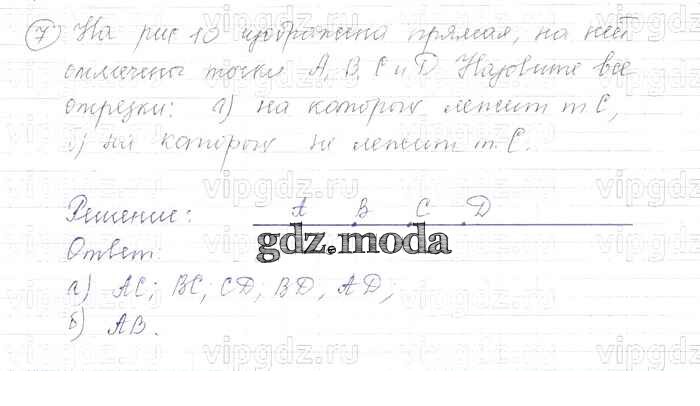 7) На рис 10 изображена прямая, на ней
отмечены точки A, B, C и D. Назовите все
отрезки: а) на которых лежит т. C,
б) на которых не лежит т. C.
Решение: A B C D
gdz.moda
Ответ:
а) AC; BC; CD; BD, AD;
б) AB.
vipgdz.ru vipgdz.ru vipgdz.ru vipgdz.ru